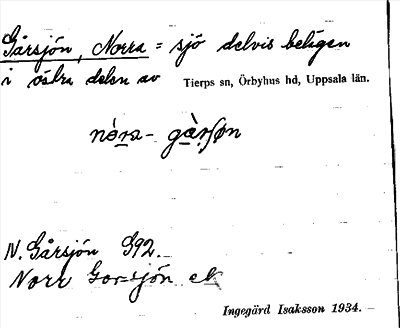 Gårsjön, Norra = sjö delvis belägen
i östra delen av Tierps sn, Örbyhus hd, Uppsala län.
N. Gårsjön G92.
Norr Gor=sjön ek
Ingegärd Isaksson 1934.